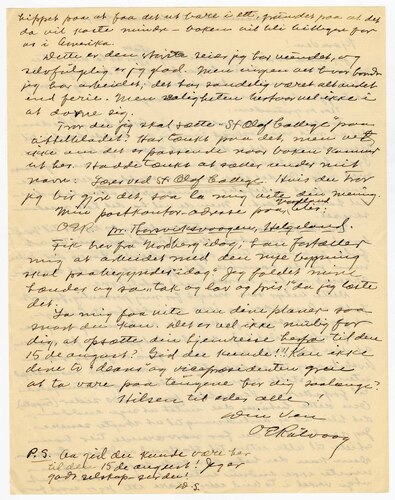 hippet paa at faa det ut bare i ett, grundet paa at det
da vil koste mindre – boken vil bli billigere for
os i Amerika.
Dette er den største seier jeg har vundet, og
selvfølgelig er jeg glad. Men ingen vet hvor haardt
jeg har arbeidet; det har sandelig været alt andet
end ferie. Men saligheten bestaar vel ikke i
at dovne sig.
Tror du jeg skal sætte – St Olaf College paa
tittelbladet? Har tænkt paa det, men vet
ikke om det er passende naar boken kommer
ut her. Hadde tænkt at sætte under mit
navn: Lærer ved St Olaf College. Hvis du tror
jeg bør gjøre det, saa la mig vite din mening.
Min postkontor-adresse paa Vestland blir:
OER. pr. Horsviksvaagen, Helgeland.
Fik brev fra Nordberg idag; han fortæller
mig at arbeidet med den nye bygning
skal paabegyndes idag. Jeg foldet mine
hænder og sa "tak og lov og pris" da jeg læste
det.
La mig faa vite om dine planer saa
snart du kan. Det er vel ikke mulig for
dig, at opsætte din hjemreise herfra til den
15de august? Gid du kunde!!! Kan ikke
dine to "deans" og vicepræsidenten greie
at ta vare paa tingene for dig saalænge?
Hilsen til eder alle!
Din ven
O E Rølvaag
P.S. Aa gid du kunde være her
til den 15de august! Jeg er
godt selskap – serdu!
D.S.